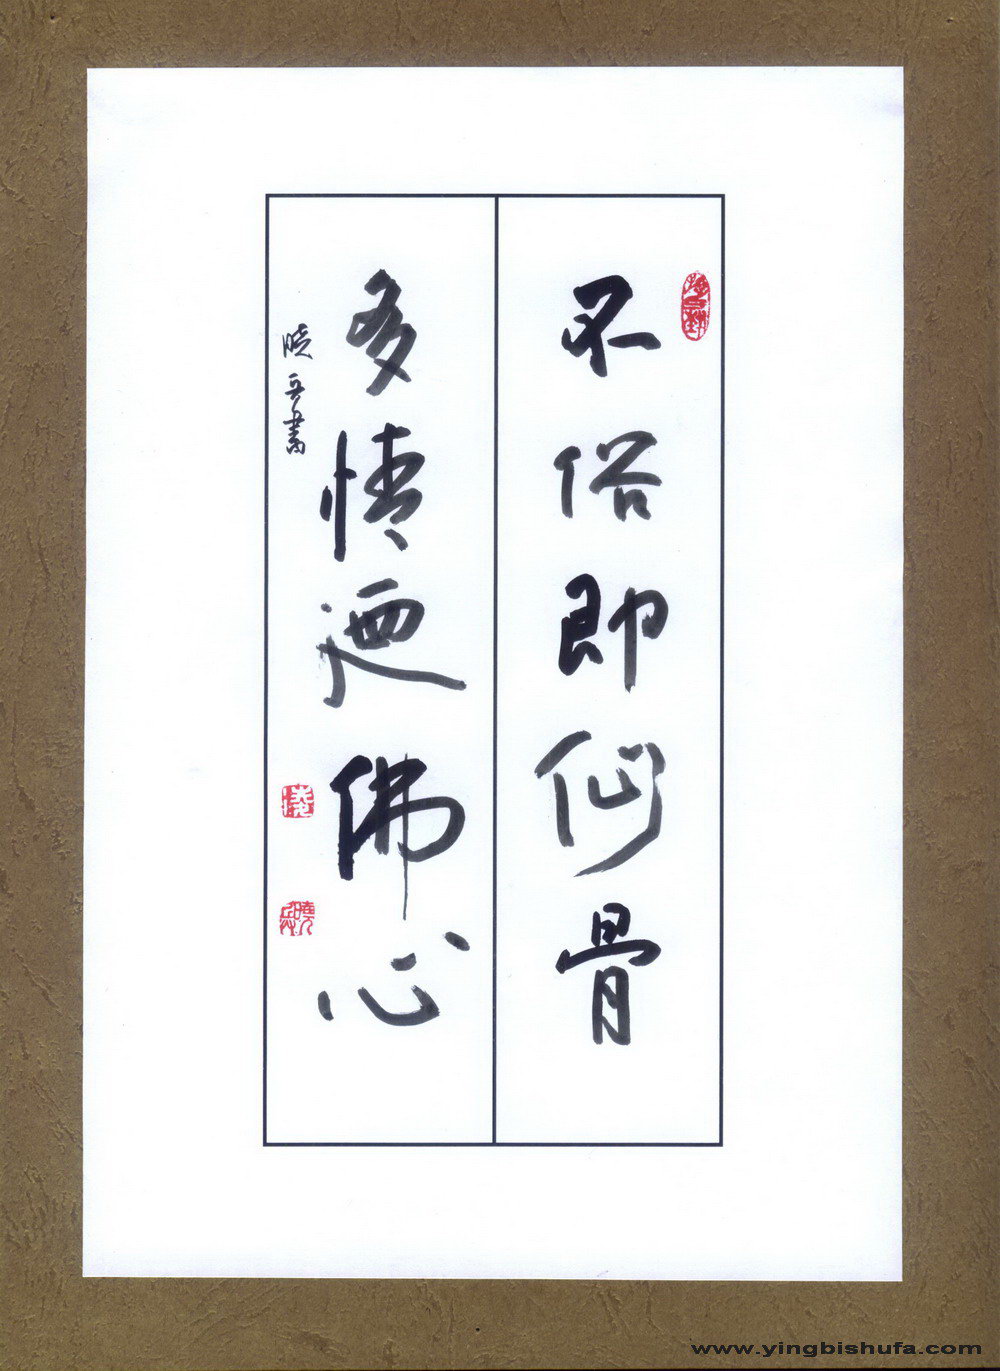 不俗即仙骨
多情廼佛心
晓兵書
www.yingbishufa.com